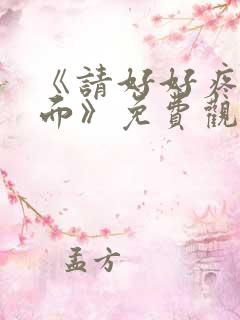 《請好好疼
而》免費觀
孟方